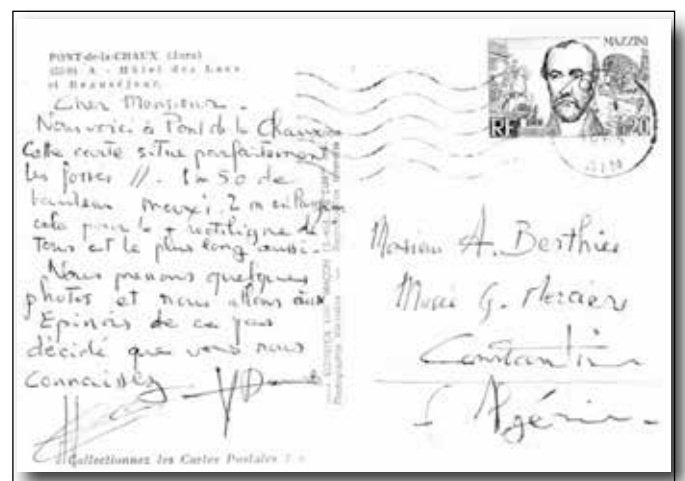 PONT-de-la-CHAUX (Jura)
A - Hôtel des Lacs
et Beauséjour.
Cher Monsieur.
Nous voici à Pont de la Chaux
Cette carte situe parfaitement
les fosses //. 1m50 de
hauteur maxi. 2 m en largeur
cela pour le + rectiligne de
Tous et le plus long aussi.
Nous prenons quelques
photos et nous allons aux
Epinois de ce pas
décidé que vous nous
connaissez
Collectionnez les Cartes Postales
MAZZINI
RF
0,20
Monsieur A. Berthier
Musée G. Mercier
Constantine
Algérie